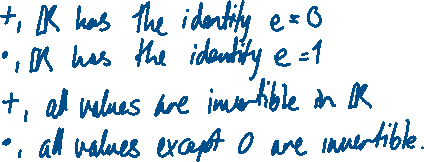 +, ℝ has the identity e = 0
•, ℝ has the identity e = 1
+, all values are invertible in ℝ
•, all values except 0 are invertible.